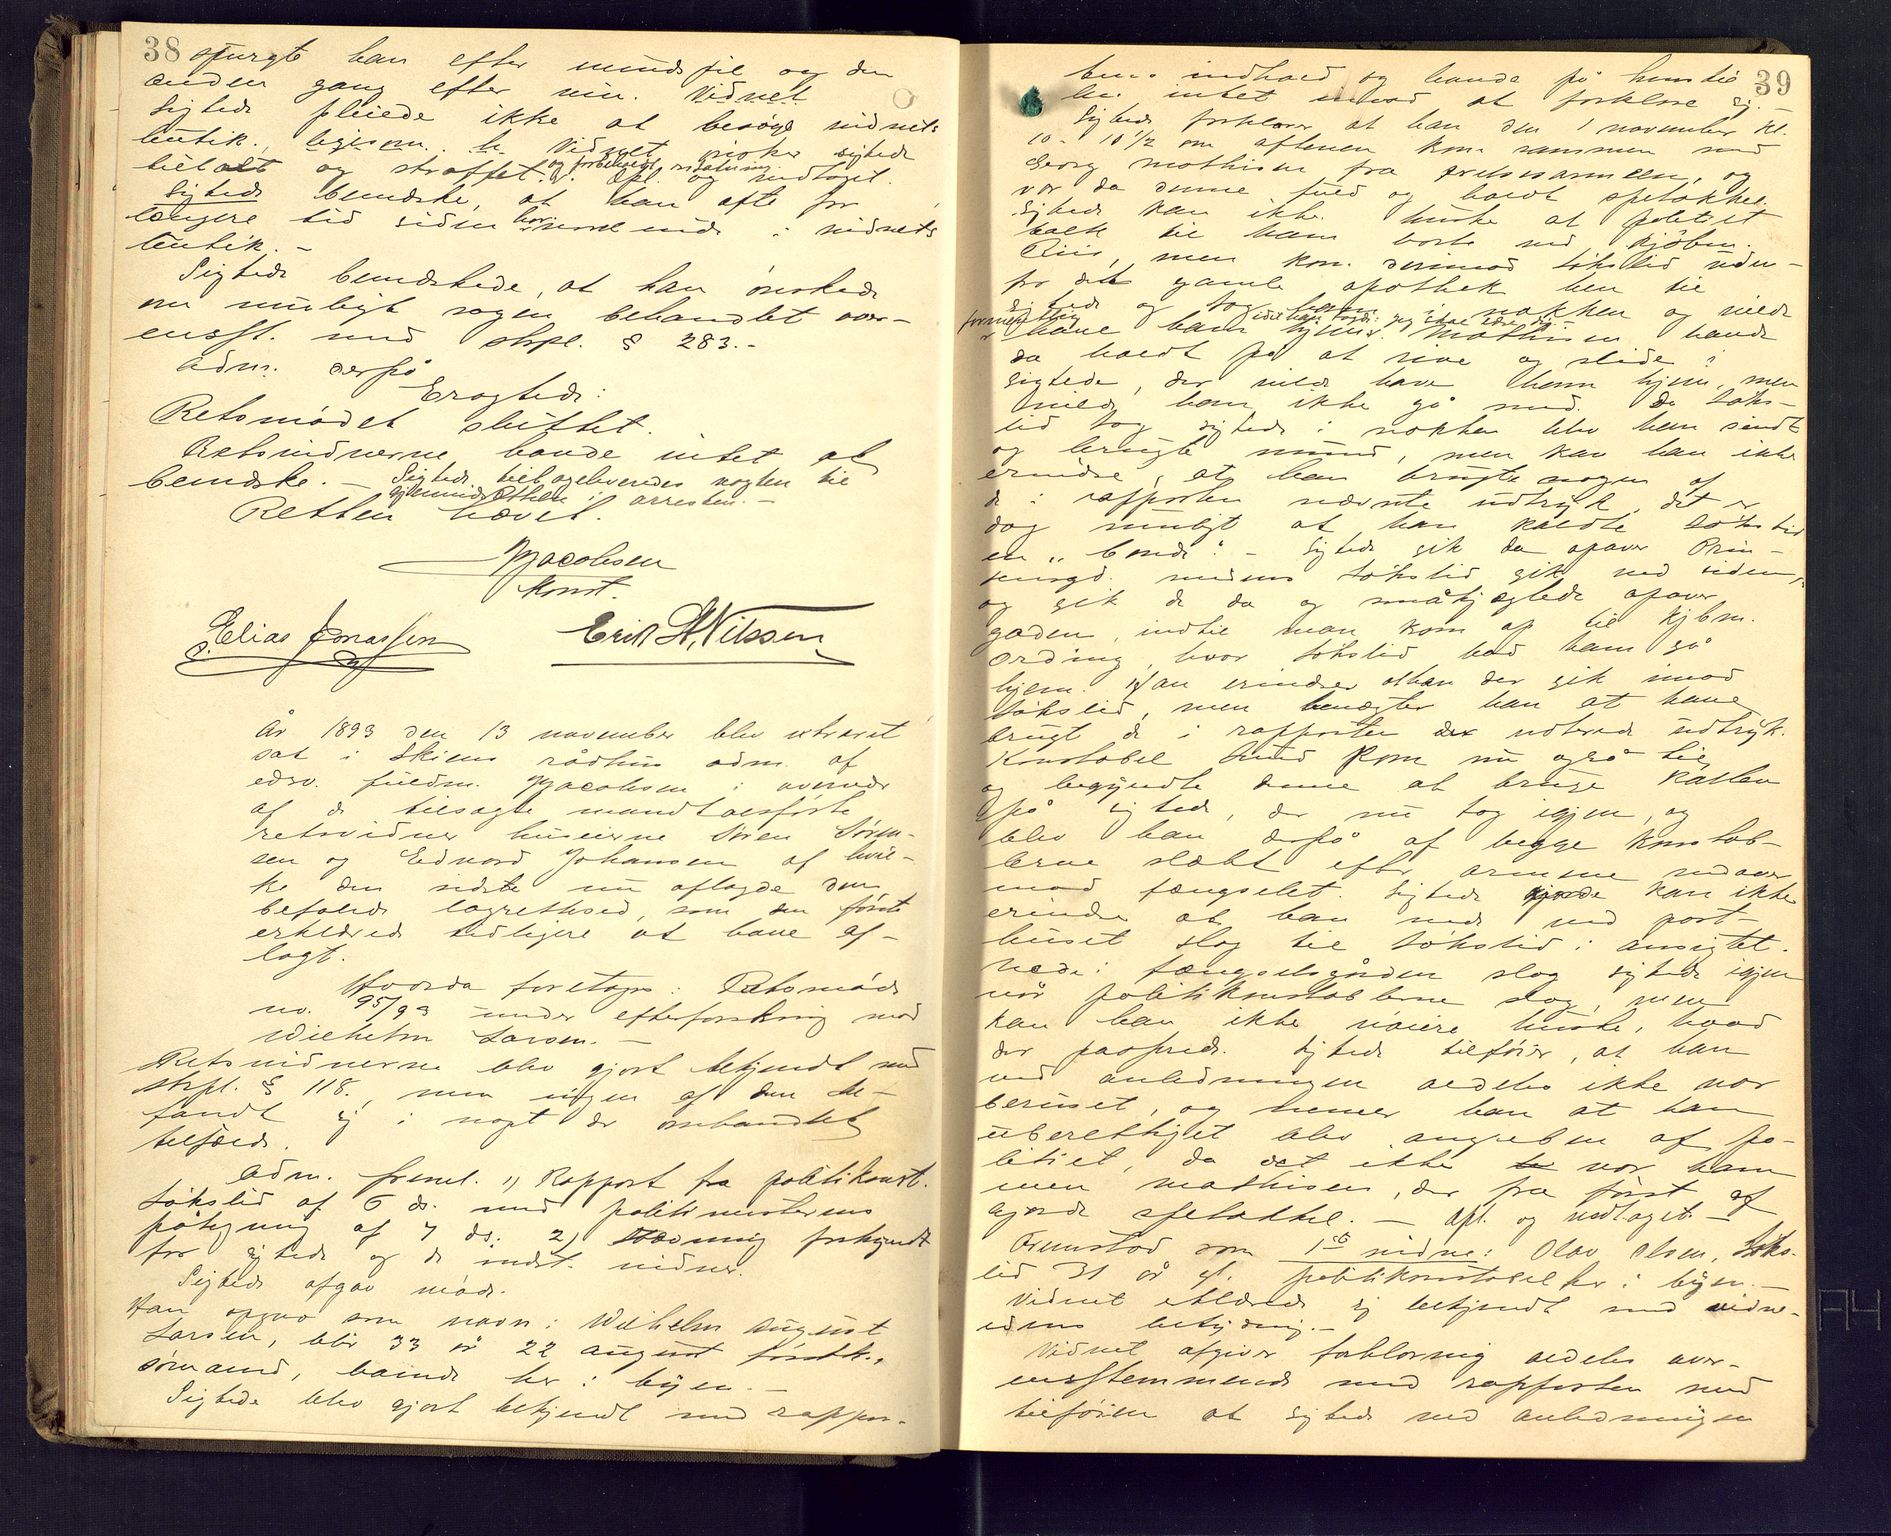 38
spurgte han efter mundspil og den
anden gang efter vin. Vidnet
Sigtede pleiede ikke at besøge vidnets
butik. Vidnet ønsker sigtede
tiltalt og straffet. Opl. og vedtaget.
og forbeholdt erstatning
Sigtede bemærke, at han ofte for
længere tid siden har været inde i vidnets
butik. –
Sigtede bemærkede, at han ønskede
om muligt sagen behandlet over-
ensst. med strpl. § 283. –
Adm. derpå
Eragtede:
Retsmødet sluttet.
Retsvidnerne havde intet at
bemærke. – Sigtede tilbageleveredes vogteren til
gjenindsættelse i arresten. –
Retten hævet.
Jacobsen
Konst.
Elias Jonassen Erik A. Nilssen
År 1893 den 13 november blev extraret
sat i Skiens rådhus adm. af
edsv. fuldm. Jacobsen i overvær
af de tilsagte mandtalsførte
retsvidner huseierne Søren Søren-
sen og Edvard Johansen af hvil-
ke den sidste nu aflagde den
befalede lagretsed, som den første
erklærede tidligere at have af-
lagt.
Hvorda foretages: Retsmøde
no. 95/93 under efterforskning mod
Wilhelm Larsen. –
Retsvidnerne blev gjort bekjendt med
strpl. § 118, men ingen af dem be-
fandt sig i noget der omhandlet
tilfælde.
Adm. freml. 1) Rapport fra politikonst.
Løkslid af 6 ds. med politimesterens
påtegning af 7 ds. 2) Stævning forkyndt
for sigtede og de indst. vidner.
Sigtede afgav møde.
Han opgav som navn: Wilhelm August
Larsen, blir 33 år 22 august førstk.,
sømand, boende her i byen. –
Sigtede blev gjort bekjendt med rappor-
39
tens indhold og havde på hens til
len intet imod at forklare sig.
Sigtede forklarer at han den 1 november kl.
10 - 10 1/2 om aftenen kom sammen med
Georg Mathisen fra frelsesarmeen, og
var da denne fuld og holdt spetakkel.
Sigtede kan ikke huske at politiet
talte til ham borte ved kjøbm.
Riis, men kom derimod Løkslid uden-
for det gamle apothek hen til
sigtede og tog ham i nakken og vilde
formentlig have ham hjem. Mathisen havde
da holdt på at rive og slide i
sigtede, der vilde have ham hjem, men
vilde han ikke gå med. Da Løks-
lid tog sigtede i nakken blev han sindt
og brugte mund, men kan han ikke
erindre, at han brugte nogen af
de i rapporten nævnte udtryk, det er
dog muligt at han kaldte Løkslid
en „bonde“. – Sigtede gik da opover Prin-
sensgd. medens Løkslid gik ved siden,
og gik de da og småkjeglede opover
gaden, indtil man kom op til kjbm.
Ording, hvor Løkslid bad ham gå
hjem. Han erindrer at han der gik imod
Løkslid, men benægter han at have
brugt de i rapporten noterede udtryk.
Konstabel Lund kom nu også til
og begyndte denne at bruge kallen
på sigtede, der nu tog igjen, og
blev han derpå af begge konstab-
lerne slæbt efter armene nedover
mod fængselet. Sigtede kan ikke
erindre at han nede ved port-
huset slog til Løkslid i ansigtet.
Nede i fængselsgården slog sigtede igjen
når politikonstablerne slog, men
kan han ikke nøiere huske, hvad
der passerede. Sigtede tilføier, at han
ved anledningen aldeles ikke var
beruset, og mener han at han
uberettiget blev angreben af po-
litiet, da det ikke var ham
men Mathisen, der fra først af
gjorde spetakkel. – Opl. og vedtaget. –
Fremstod som 1ste vidne: Olav Olsen Løks-
lid 31 år gl. politikonstabel her i byen. –
Vidnet erklærede sig bekjendt med vidne-
edens betydning. –
Vidnet afgiver forklaring aldeles over-
ensstemmende med rapporten med
tilføien at sigtede ved anledningen